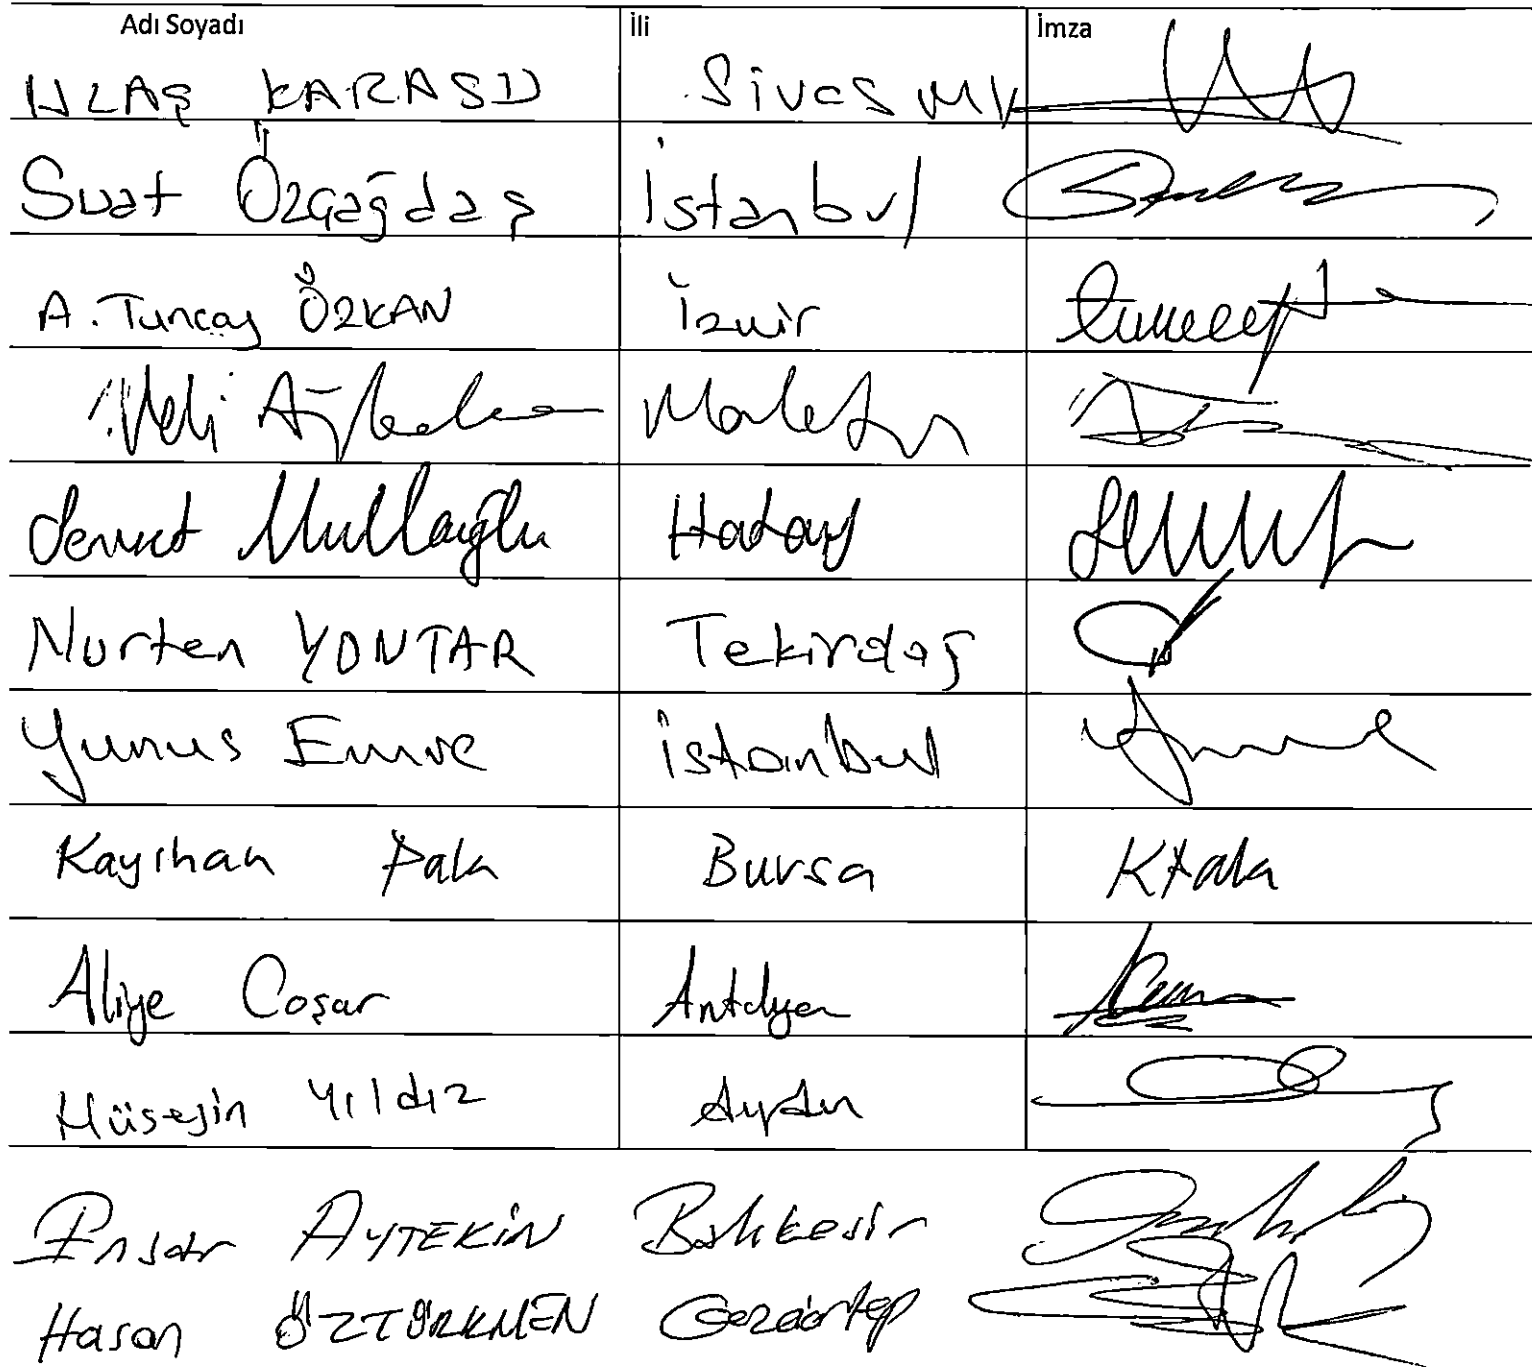 Adı Soyadı İli İmza
ULAŞ KARASU Sivas MV
Suat Özçağdaş İstanbul
A. Tuncay ÖZKAN İzmir
Veli Ağbaba Malatya
Servet Mullaoğlu Hatay
Nurten YONTAR Tekirdağ
Yunus Emre İstanbul
Kayıhan Pala Bursa KPala
Aliye Coşar Antalya
Hüseyin Yıldız Aydın
Ensar AYTEKİN Balıkesir
Hasan ÖZTÜRKMEN Gaziantep